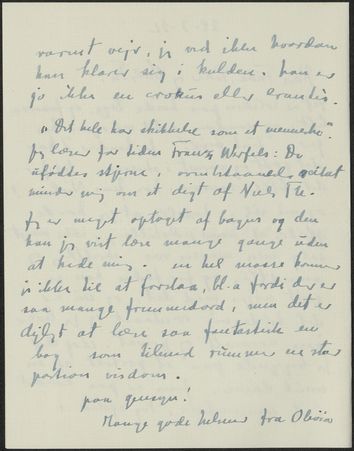 varmt vejr, jeg ved ikke hvordan
han klarer sig i kulden. han er
jo ikke en crocus eller erantis.
"Det hele har skikkelse som et menneske".
Jeg læser for tiden Franz Werfels: De
ufødtes stjerne, ovenstaaende citat
minder mig om et digt af Niels Th.
Jeg er meget optaget af bogen og den
kan jeg vist læse mange gange uden
at kede mig. en hel masse kommer
jeg ikke til at forstaa, bl.a fordi der er
saa mange fremmedord, men det er
dejligt at læse saa fantastisk en
bog som tilmed rummer en stor
portion visdom.
paa gensyn!
Mange gode hilsner fra Olivia